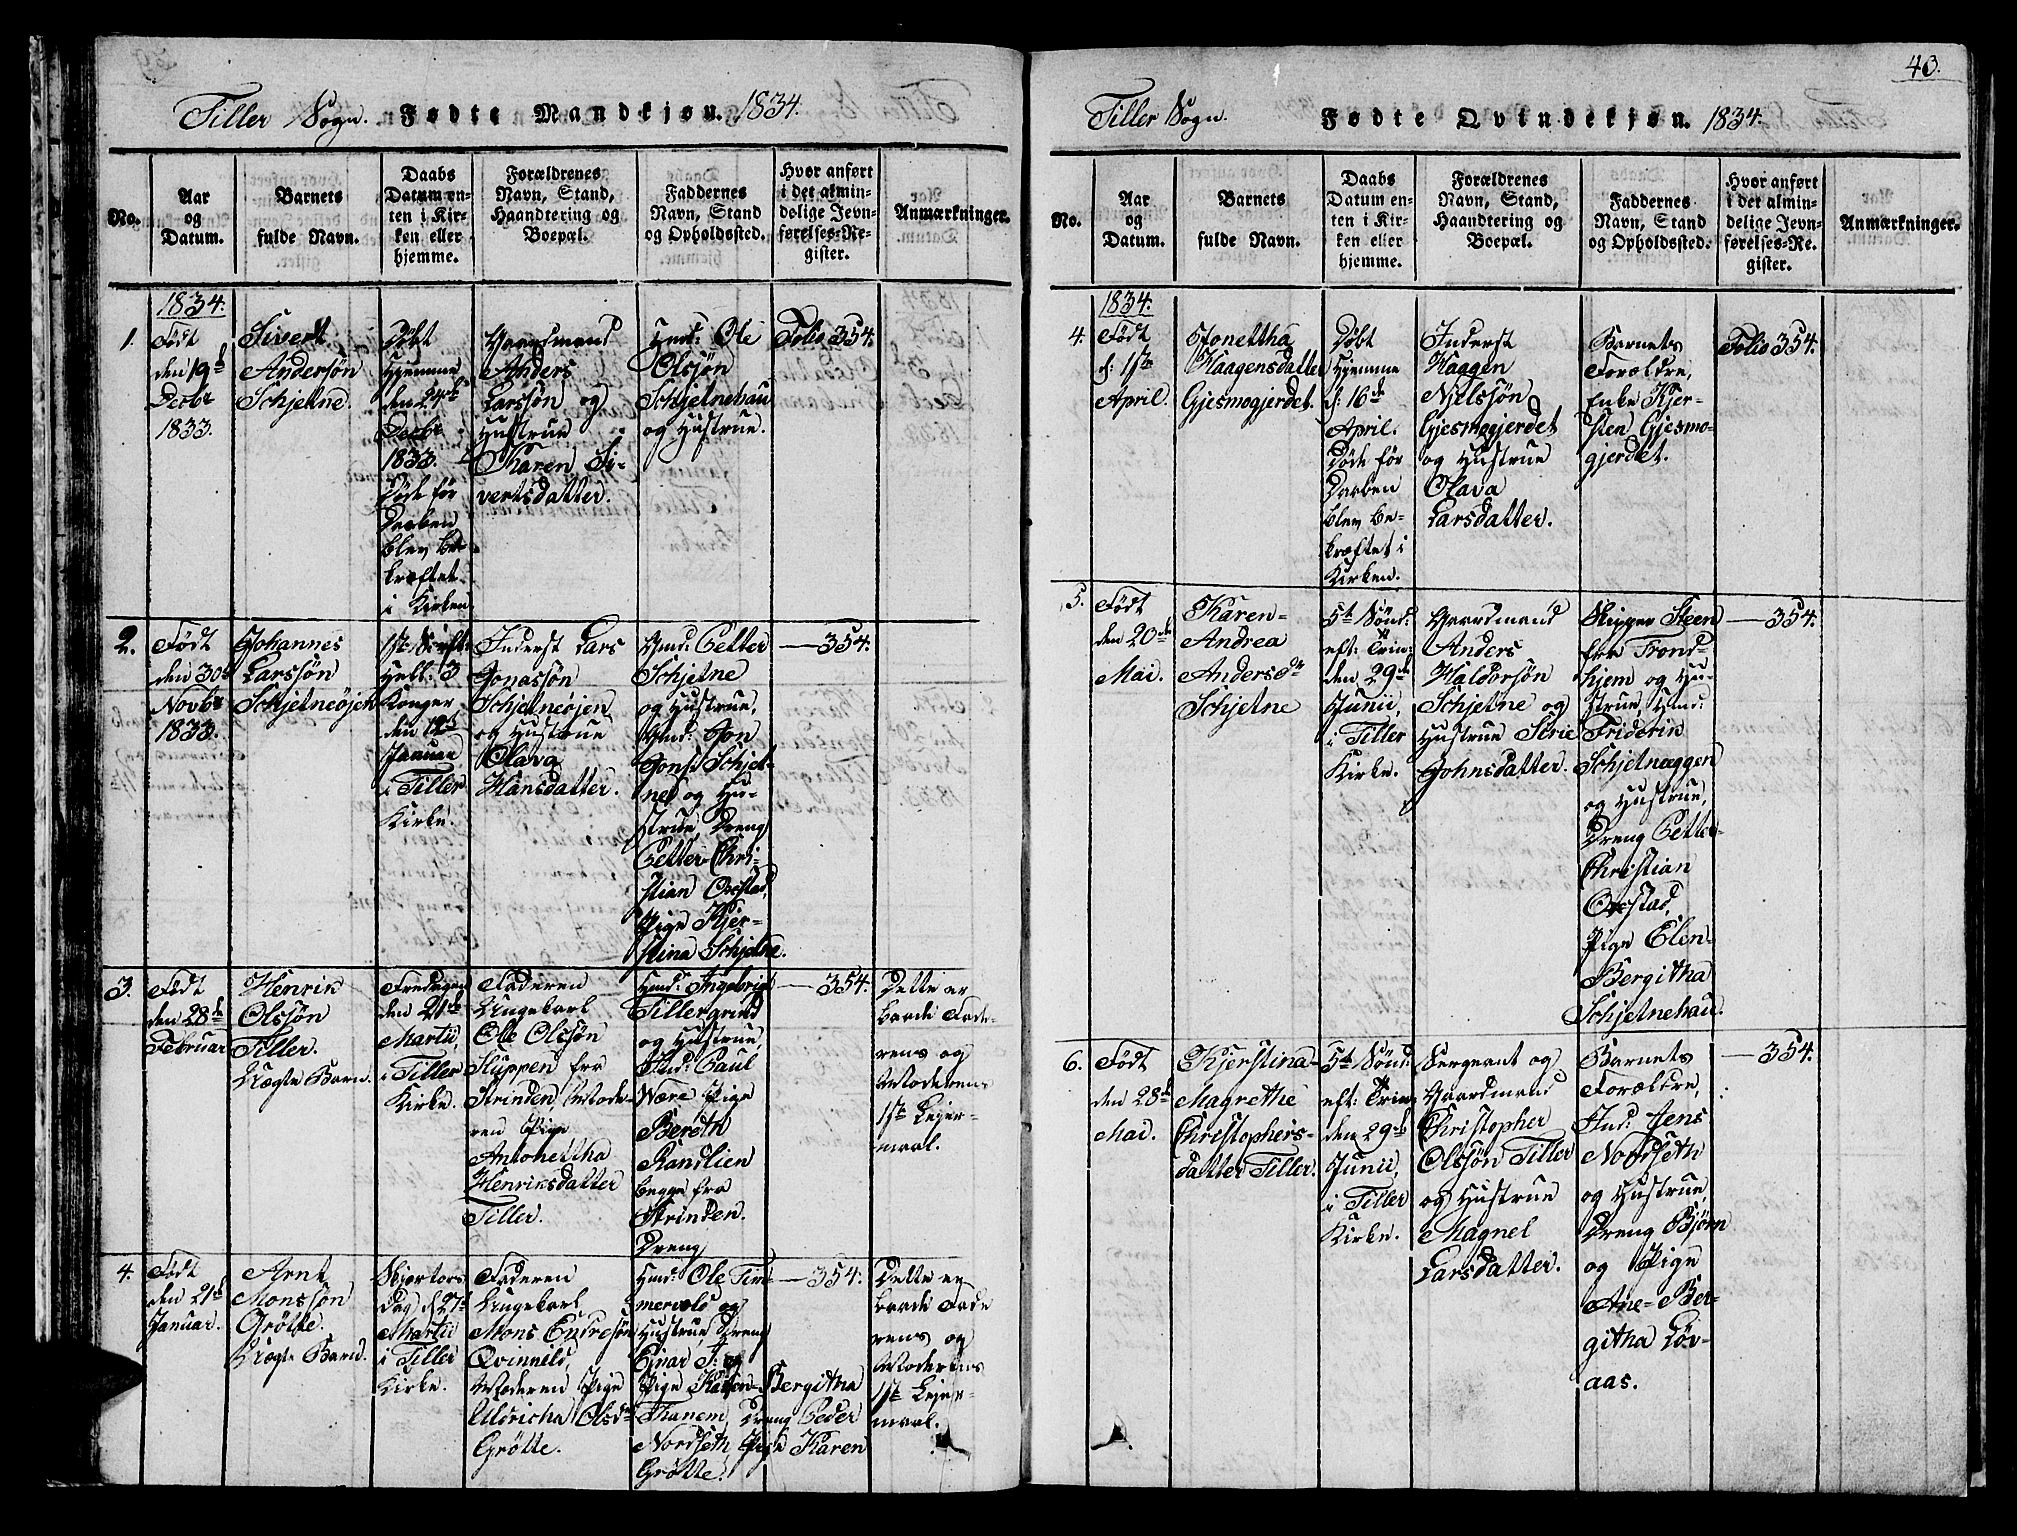 Tiller Sogn. Fødte Mandkjøn. 1834.
No.
Aar
og
Datum.
Barnets
fulde Navn.
Daabs
Datum en-
ten i Kir-
ken eller
hjemme.
Forældrenes
Navn, Stand,
Haandtering og
Boepæl.
Faddernes
Navn, Stand
og Opholdssted.
Hvor anført
i det almin-
delige Jevn-
førelses-Re-
gister.
Anmærkninger.
1.
1834.
Født
den 19de
Decbr
1833.
Sivert
Andersøn
Schjetne.
Døbt
Hjemme
den 24de
Decbr
1833.
Døde før
Daaben
blev be-
kræftet
i Kirken.
Gaardmand
Anders
Larssøn og
Hustrue
Karen Si-
vertsdatter.
Ole
Olssøn
Schjetnehau
og Hustrue.
Folio 354.
2.
Født
den 30te
Novbr
1833.
Johannes
Larssøn
Schjetneøjen
Hell: 3
Konger
den 12te
Januar
i Tiller
Kirke.
Inderst Lars
Jonassøn
Schjetneøjen
og Hustrue
Olava
Hansdatter.
Gmd: Petter
Schjetne
og Hustrue,
Gmd: Jon
Jonss Schjet-
ne og Hu-
strue, Dreng
Petter Chri-
stian Okstad,
Pige Kjer-
stina Schjetne.
— 354.
3.
Født
den 28de
Februar
Henrik
Olssøn
Tiller.
Uægte Barn.
Fredagen
den 21de
Martii,
i Tiller
Kirke.
Faderen
Ungekarl
Ole Olssøn
Sluppen fra
Strinden, Mode-
ren Pige
Antonettha
Henriksdatter
Tiller.
Hmd: Ingebrigt
Tillergrind
og Hustrue,
Ind: Paul
Være Pige
Bereth
Randlien
begge fra
Strinden.
Dreng
— 354.
Dette er
baade Fade-
rens og
Moderens
1ste Lejer-
maal.
4.
Født
den 21de
Januar.
Arnt
Monssøn
Grøtte.
Uægte Barn.
Skjærtors-
dag d 27de
Martii
i Tiller
Kirke.
Faderen
Ungekarl
Mons Endresøn
Qvinnild,
Moderen Pige
Uldricha Olsdr
Grøtte.
Hmd: Ole Tim-
mervold og
Hustrue Dreng
Einar I: og
Pige Karen-Bergitha
Thanem, Dreng Peder
Nordseth Pige Karen
Grøtte.
— 354.
Dette er
baade Fade
rens og
Moderens
1ste Lejer-
maal.
40.
Tiller Sogn. Fødte Qvindekjøn. 1834.
No.
Aar
og
Datum.
Barnets
fulde Navn.
Daabs
Datum en-
ten i Kir-
ken eller
hjemme.
Forældrenes
Navn, Stand,
Haandtering og
Boepæl.
Faddernes
Navn, Stand
og Opholdssted.
Hvor anført
i det almin-
delige Jevn-
førelses-Re-
gister.
Anmærkninger.
4.
1834.
Født
d: 1ste
April.
Jonettha
Haagensdatter
Gjesmogjerdet.
Døbt
Hjemme
d: 16de
April.
Døde før
Daaben
blev be-
kræftet i
Kirken.
Inderst
Haagen
Nielssøn
Gjesmogjerdet
og Hustrue
Olava
Larsdatter.
Barnets
Forældre,
Enke Kjer-
sten Gjesmo-
gjerdet.
Folio 354.
5.
Født
den 20de
Mai.
Karen-
Andrea
Andersdr
Schjetne
5te Sønd:
eft: Trin:
den 29de
Junii,
i Tiller
Kirke.
Gaardmand
Anders
Haldorsøn
Schjetne og
Hustrue Siri
Johnsdatter.
Skipper Steen
fra Trond-
hjem og Hu-
strue, Hmd:
Friderik
Schjetnæggen
og Hustrue,
Dreng Petter-
Christian
Okstad,
Pige Elen-
Bergitha
Schjetnehau.
— 354.
6.
Født
den 28de
Mai.
Kjerstina-
Magrethe
Christophers-
datter Tiller.
5te Sønd:
eft: Trin:
den 29de
Junii,
i Tiller
Kirke.
Sergeant og
Gaardmand
Christopher
Olssøn Tiller
og Hustrue
Magnel
Larsdatter.
Barnets
Forældre,
Ind: Jens
Nordseth
og Hustrue,
Dreng Bjørn
og Pige
Ane-Ber-
githa Løv-
aas.
— 354.